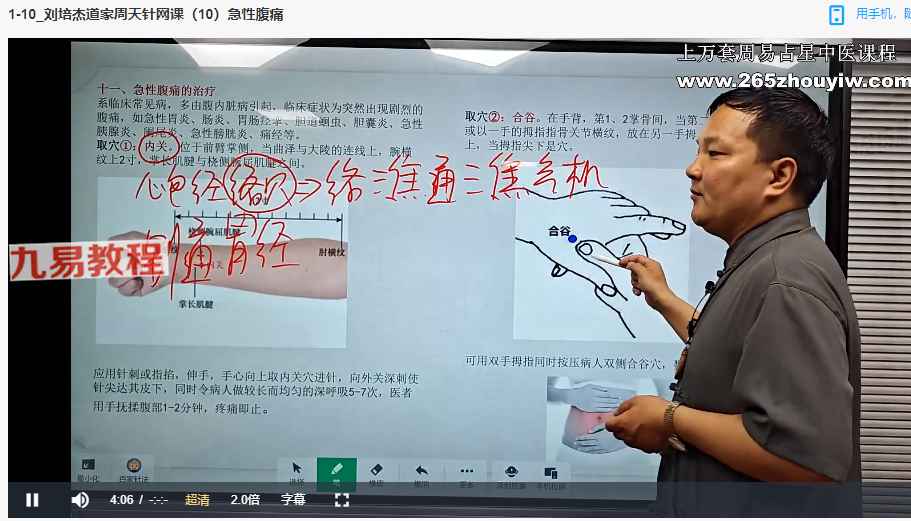 1-10_刘培杰道家周天针网课（10）急性腹痛
用手机，
上万套周易占星中医课程
www.265zhouyiw.com
十一、急性腹痛的治疗
系临床常见病，多由腹内脏病引起，临床症状为突然出现剧烈的
腹痛，如急性胃炎、肠炎、胃肠痉挛、胆道蛔虫、胆囊炎、急性
胰腺炎、阑尾炎、急性膀胱炎、痛经等。
取穴①：内关。位于前臂掌侧，当曲泽与大陵的连线上，腕横
纹上2寸，掌长肌腱与桡侧腕屈肌腱之间。
心包经络穴⇒络三焦通三焦气机
桡侧腕屈肌腱
别通胃经
肘横纹
掌长肌腱
九易教程
应用针刺或指掐，伸手，手心向上取内关穴进针，向外关深刺使
针尖达其皮下，同时令病人做较长而均匀的深呼吸5-7次，医者
用手抚揉腹部1-2分钟，疼痛即止。
取穴②：合谷。在手背，第1、2掌骨间，当第
或以一手的拇指指骨关节横纹，放在另一手拇
上，当拇指尖下是穴。
合谷
可用双手拇指同时按压病人双侧合谷穴，
最小化
选择
笔
撤销
更多
4:06 / -:-:-
超清
2.0倍
字幕